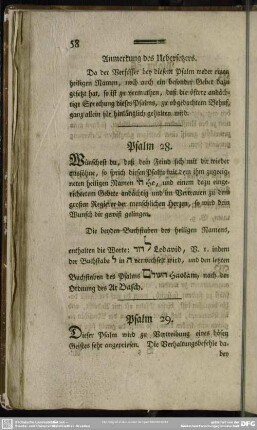 58
Anmerkung des Uebersetzers.
Da der Verfasser bey diesem Psalm weder einen
heiligen Namen, noch auch ein besonder Gebet dazu
gesetzt hat, so ist zu vermuthen, daß die öftere andäch-
tige Sprechung dieses Psalms, zu obgedachtem Behuf,
ganz allein für hinlänglich gehalten wird.
Psalm 28.
Wünschest du, daß dein Feind sich mit dir wieder
aussöhne, so sprich diesen Psalm mit dem ihm zugeeig-
neten heiligen Namen He, und einem dazu einge-
richteten Gebete andächtig und im Vertrauen zu dem
großen Regierer der menschlichen Herzen, so wird dein
Wunsch dir gewiß gelingen.
Die beyden Buchstaben des heiligen Namens,
enthalten die Worte: לדוד Ledavid, V. 1. indem
der Buchstabe ל in verwechselt wird, und den letzten
Buchstaben des Psalms העולם Haolam, nach der
Ordnung des At Basch.
Psalm 29.
Dieser Psalm wird zu Vertreibung eines bösen
Geistes sehr angepriesen. Die Verhaltungsbefehle da-
bey